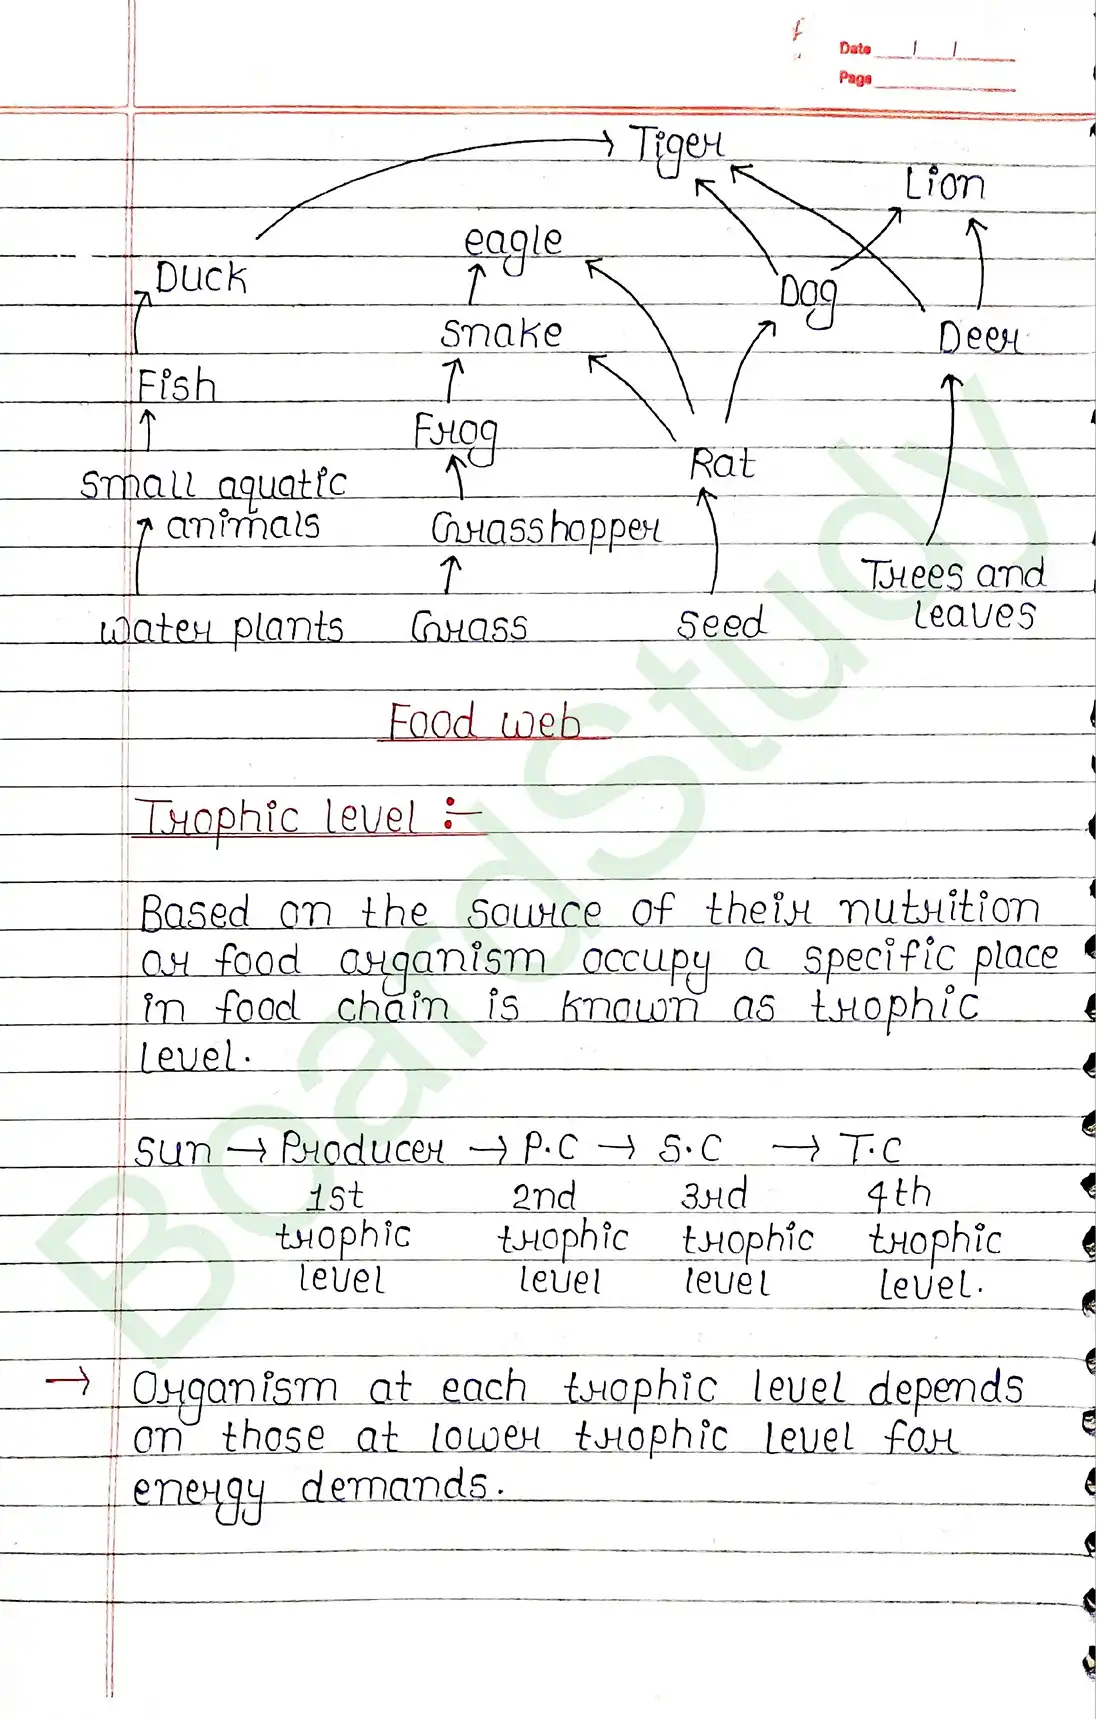 Date
Page
Tiger
Lion
eagle
Duck
Dog
snake
Deer
Fish
Frog
Rat
small aquatic
animals
Grasshopper
Trees and
leaves
water plants
Grass
seed
Food web
Trophic level :-
Based on the source of their nutrition
or food organism occupy a specific place
in food chain is known as trophic
level.
sun → Producer → P.C → S.C → T.C
1st 2nd 3rd 4th
trophic trophic trophic trophic
level level level level.
→ Organism at each trophic level depends
on those at lower trophic level for
energy demands.
BoardStudy